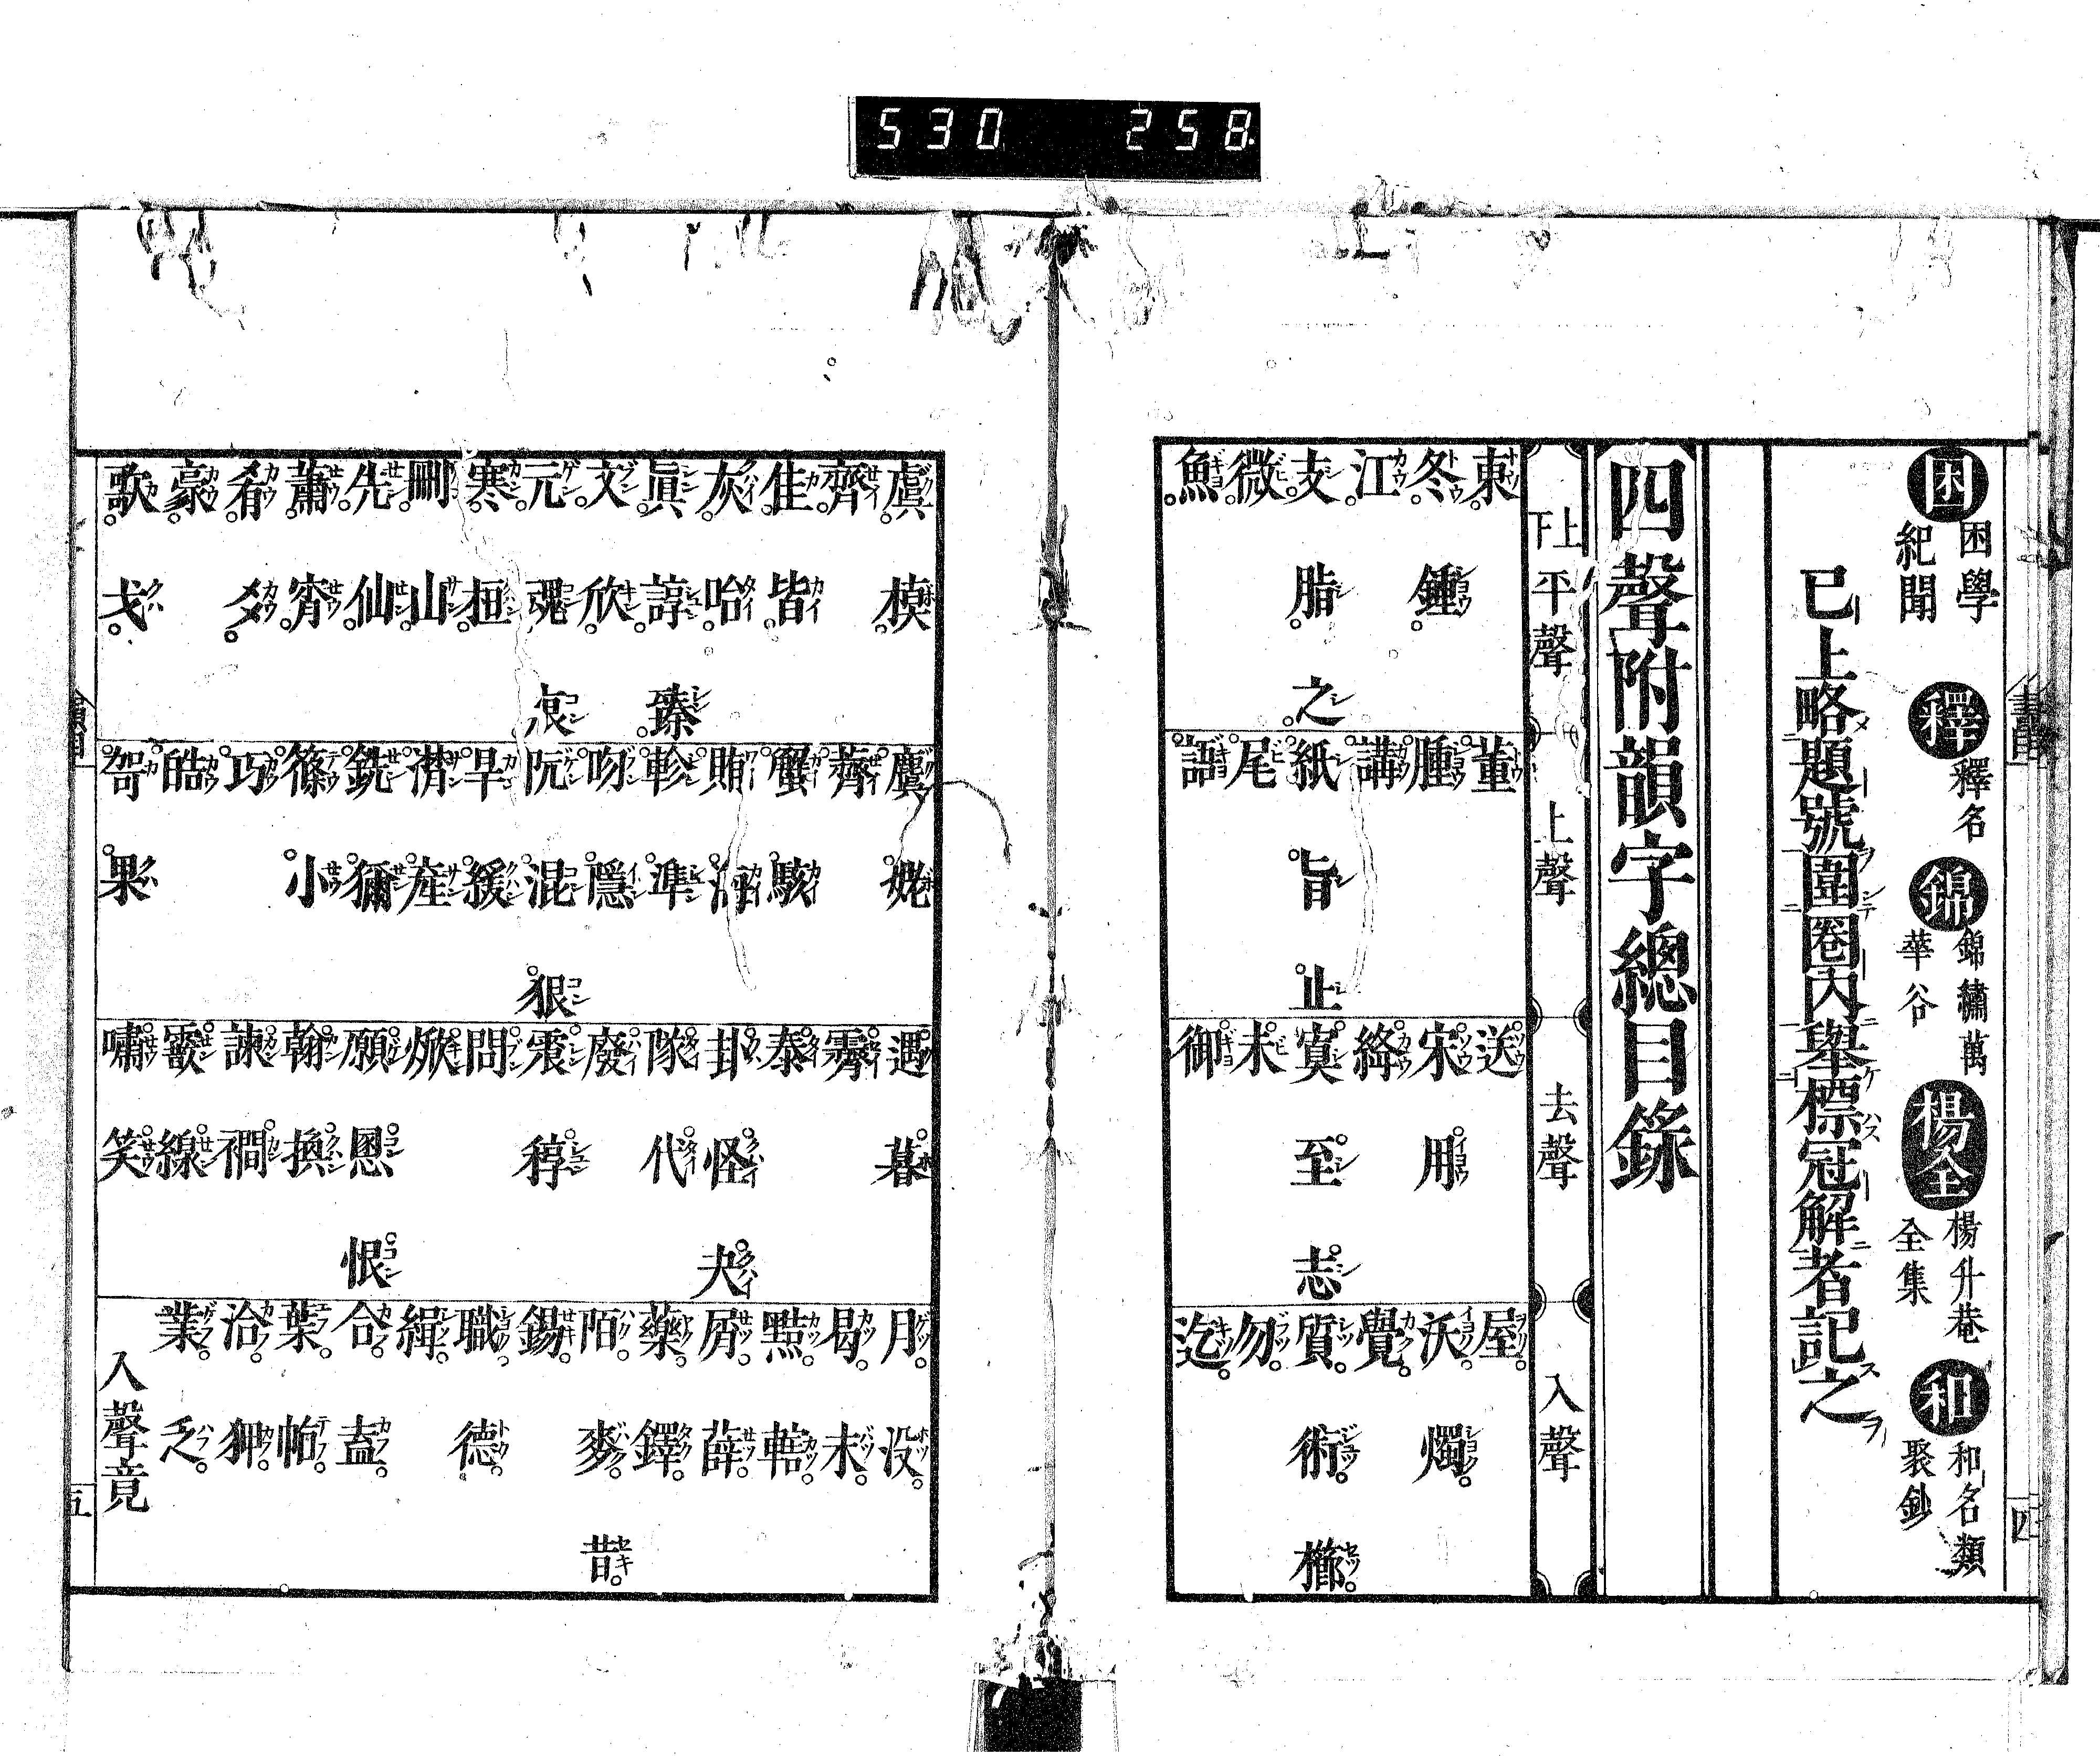 530 258
困 困學紀聞 釋 釋名 錦 錦繡萬華谷 楊全 楊升菴全集 和 和名類聚鈔
已上略題號圍圈内舉標冠解者記之
四聲附韻字總目錄
上下平聲 上聲 去聲 入聲
東 董 送 屋
冬 鍾 腫 宋 用 沃 燭
江 講 絳 覺
支 脂 之 紙 旨 止 寘 至 志 質 術 櫛
微 尾 未 勿
魚 語 御 迄
四
虞 模 麌 姥 遇 暮 月 没
齊 薺 霽 曷 末
佳 皆 蟹 駭 泰 黠 轄
灰 咍 賄 海 卦 怪 夬 屑 薛
眞 諄 臻 軫 準 隊 代 藥 鐸
文 欣 吻 隱 廢 陌 麥 昔
元 魂 痕 阮 混 狠 震 稕 錫
寒 桓 旱 緩 問 職 德
刪 山 潸 產 焮 緝
先 仙 銑 獮 願 慁 恨 合 盍
蕭 宵 篠 小 翰 換 葉 帖
肴 爻 巧 諫 襉 洽 狎
豪 皓 霰 線 業 乏
歌 戈 哿 果 嘯 笑 入聲竟
五